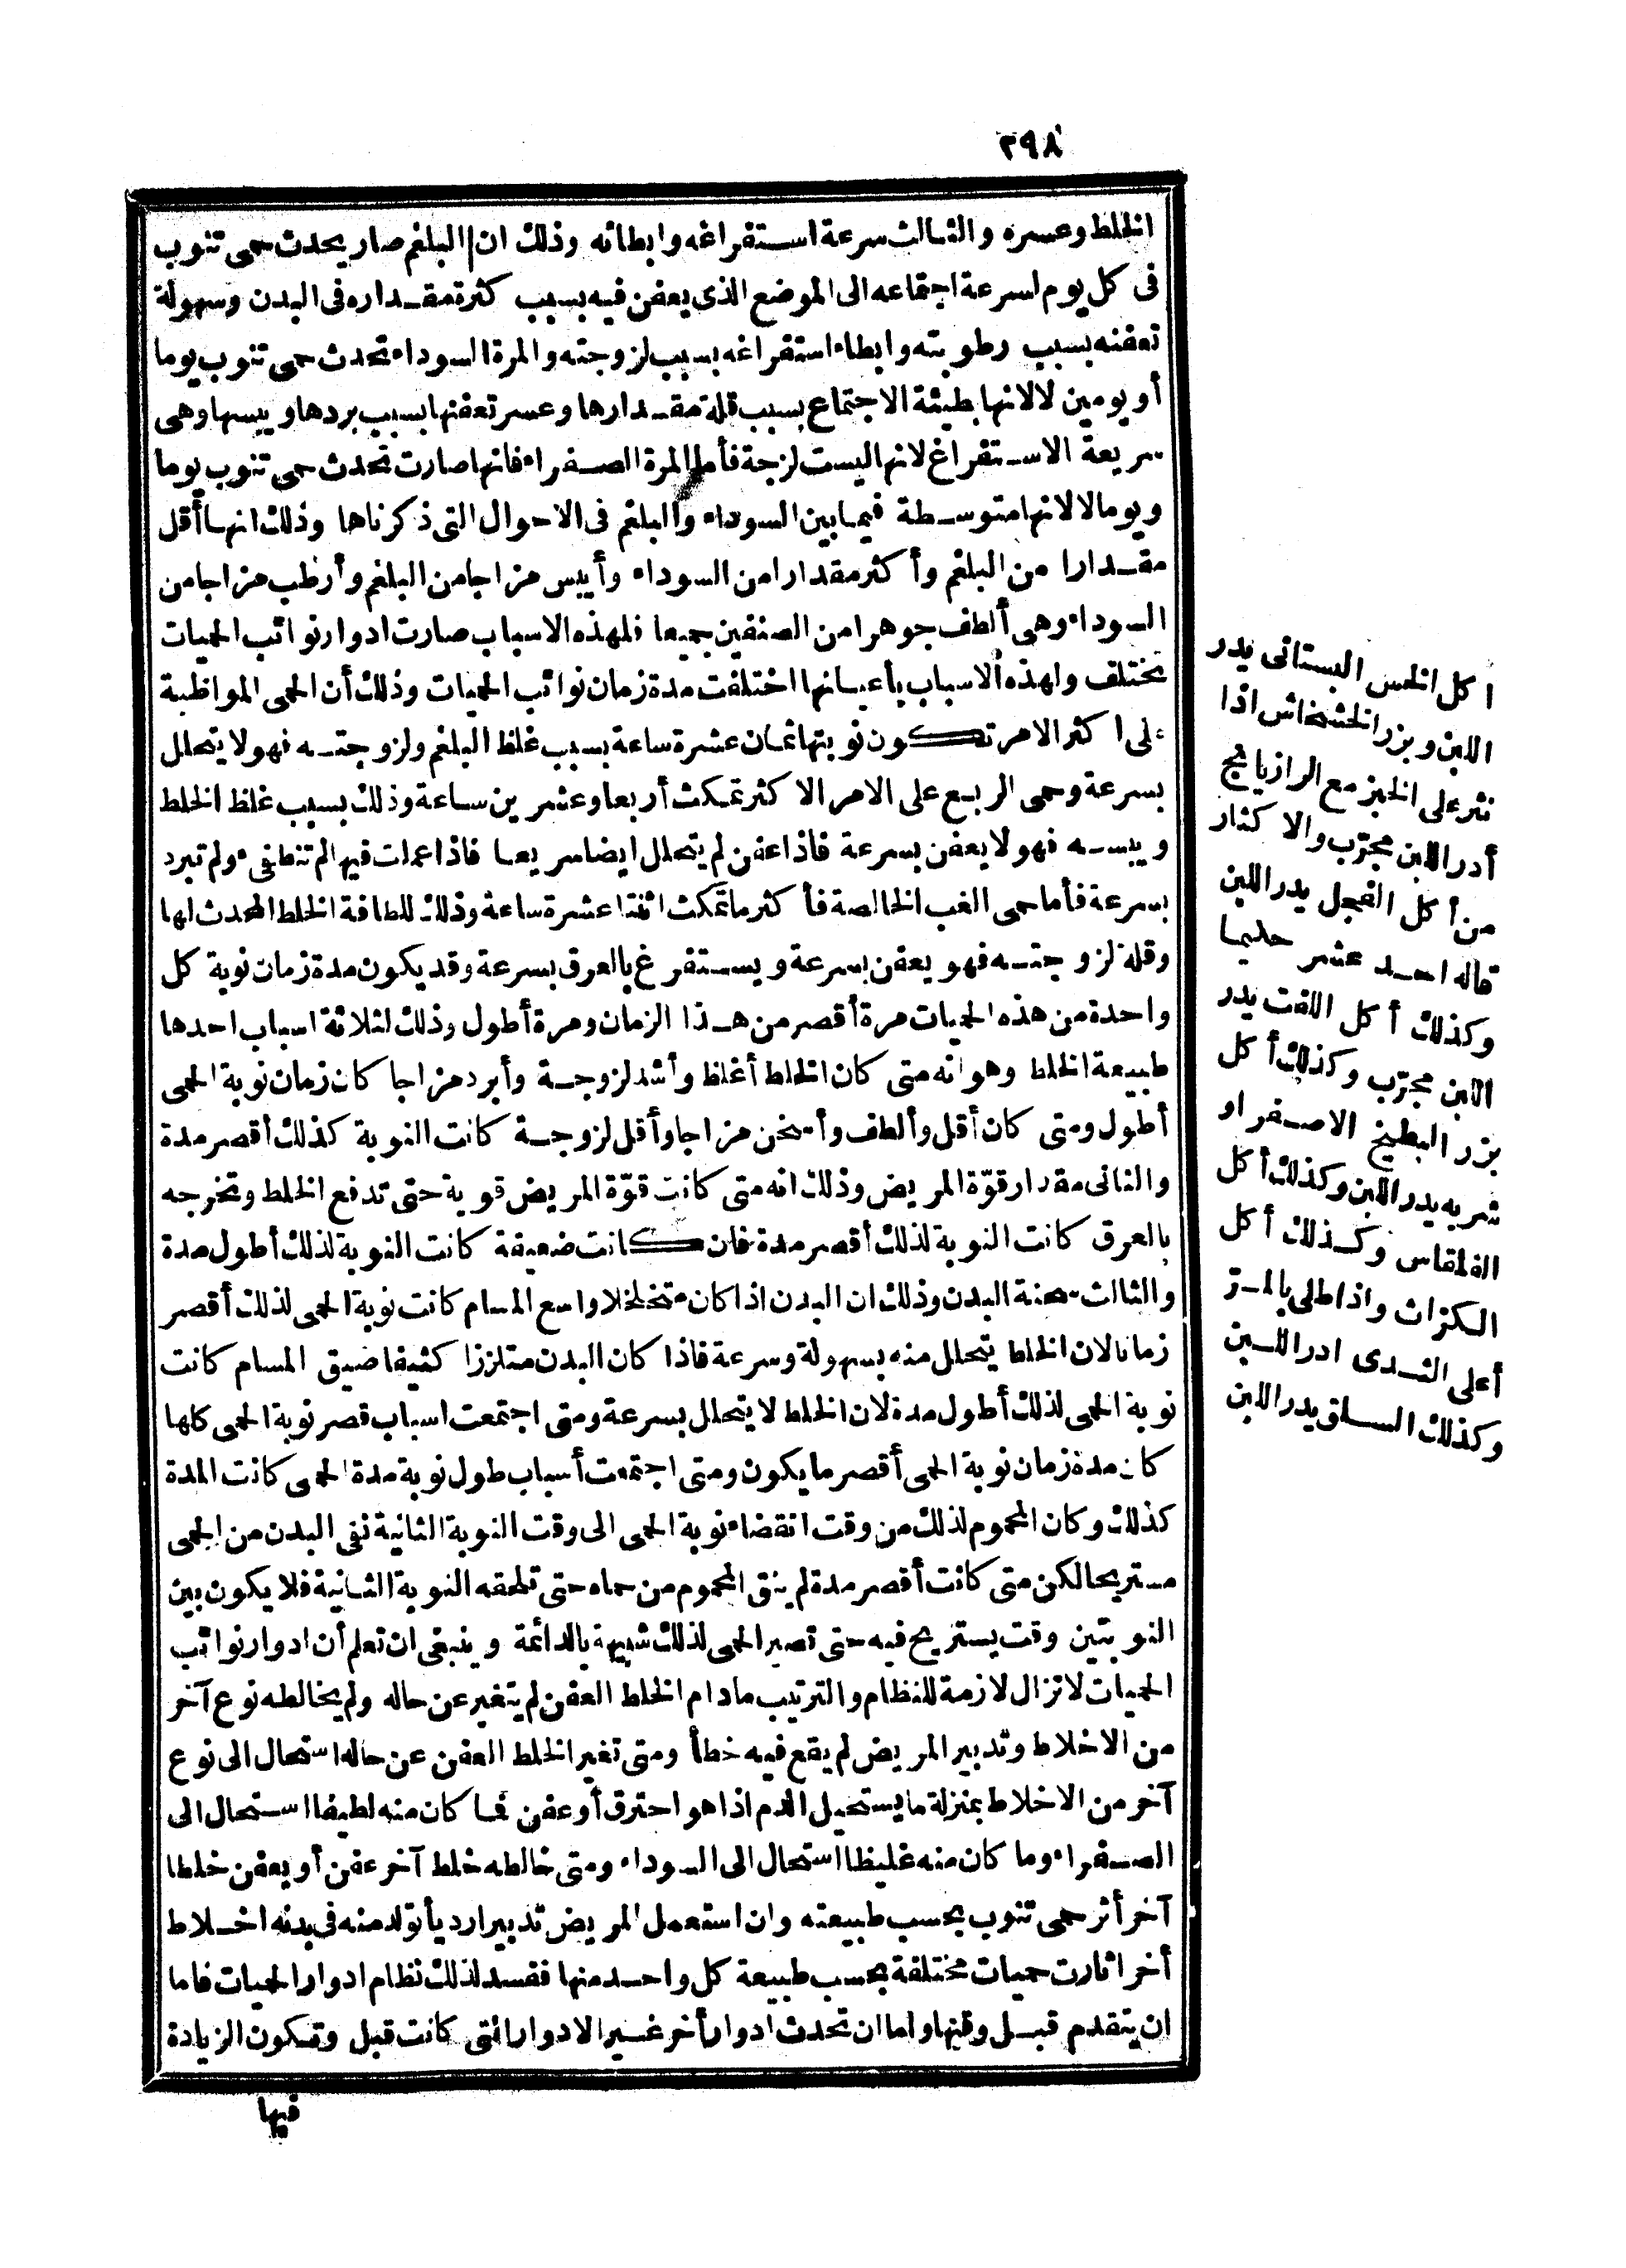 ٣٩٨
الخلط وعسره والثالث سرعة استفراغه وابطائه وذلك ان البلغم صار يحدث حمى تنوب
فى كل يوم لسرعة اجتماعه الى الموضع الذى يعفن فيه بسبب كثرة مقداره فى البدن وسهولة
تعفنه بسبب رطوبته وابطاء استفراغه بسبب لزوجته والمرة السوداء تحدث حمى تنوب يوما
أو يومين لا لانها بطيئة الاجتماع بسبب قلة مقدارها وعسر تعفنها بسبب بردها ويبسها وهى
سريعة الاستفراغ لانها ليست لزجة فأما المرة الصفراء فانها صارت تحدث حمى تنوب يوما
ويوما لا لانها متوسطة فيما بين السوداء والبلغم فى الاحوال التى ذكرناها وذلك انها أقل
مقدارا من البلغم وأكثر مقدارا من السوداء وأيبس مزاجا من البلغم وأرطب مزاجا من
السوداء وهى ألطف جوهرا من الصنفين جميعا فلهذه الاسباب صارت ادوار نوائب الحميات
تختلف ولهذه الاسباب بأعيانها اختلفت مدة زمان نوائب الحميات وذلك أن الحمى المواظبة
على اكثر الامر تكون نوبتها ثمان عشرة ساعة بسبب غلظ البلغم ولزوجته فهو لا يتحلل
بسرعة وحمى الربع على الامر الاكثر تمكث أربعا وعشرين ساعة وذلك بسبب غلظ الخلط
ويبسه فهو لا يعفن بسرعة فاذا عفن لم يتحلل ايضا سريعا فاذا عملت فيها لم تنطفئ ولم تبرد
بسرعة فأما حمى الغب الخالصة فأكثر ما تمكث اثنتا عشرة ساعة وذلك للطافة الخلط المحدث لها
وقلة لزوجته فهو يعفن بسرعة ويستفرغ بالعرق بسرعة وقد يكون مدة زمان نوبة كل
واحدة من هذه الحميات مرة أقصر من هذا الزمان ومرة أطول وذلك لثلاثة اسباب احدها
طبيعة الخلط وهو انه متى كان الخلط أغلظ وأشد لزوجة وأبرد مزاجا كان زمان نوبة الحمى
أطول ومتى كان أقل وألطف وأسخن مزاجا وأقل لزوجة كانت النوبة كذلك أقصر مدة
والثانى مقدار قوّة المريض وذلك انه متى كانت قوّة المريض قوية حتى تدفع الخلط وتخرجه
بالعرق كانت النوبة لذلك أقصر مدة فان كانت ضعيفة كانت النوبة لذلك أطول مدة
والثالث سحنة البدن وذلك ان البدن اذا كان متخلخلا واسع المسام كانت نوبة الحمى لذلك أقصر
زمانا لان الخلط يتحلل منه بسهولة وسرعة فاذا كان البدن متلززا كثيفا ضيق المسام كانت
نوبة الحمى لذلك أطول مدة لان الخلط لا يتحلل بسرعة ومتى اجتمعت اسباب قصر نوبة الحمى كلها
كان مدة زمان نوبة الحمى أقصر ما يكون ومتى اجتمعت أسباب طول نوبة مدة الحمى كانت المدة
كذلك وكان المحموم لذلك من وقت انقضاء نوبة الحمى الى وقت النوبة الثانية نقى البدن من الحمى
مستريحا لكن متى كانت أقصر مدة لم ينق المحموم من حماه حتى تلحقه النوبة الثانية فلا يكون بين
النوبتين وقت يستريح فيه حتى تصير الحمى لذلك شبيهة بالدائمة وينبغى ان تعلم أن ادوار نوائب
الحميات لا تزال لازمة للنظام والترتيب مادام الخلط العفن لم يتغير عن حاله ولم يخالطه نوع آخر
من الاخلاط وتدبير المريض لم يقع فيه خطأ ومتى تغير الخلط العفن عن حاله استحال الى نوع
آخر من الاخلاط بمنزلة ما يستحيل الدم اذا هو احترق أو عفن فما كان منه لطيفا استحال الى
الصفراء وما كان منه غليظا استحال الى السوداء ومتى خالطه خلط آخر عفن أو يعفن خلطا
آخر أثر حمى تنوب بحسب طبيعته وان استعمل المريض تدبيرا رديأ تولد منه فى بدنه اخلاط
أخر اثارت حميات مختلفة بحسب طبيعة كل واحد منها ففسد لذلك نظام ادوار الحميات فاما
ان يتقدم قبل وقتها واما ان تحدث ادوار أخر غير الادوار التى كانت قبل وتكون الزيادة
فيها
اكل الخس البستانى يدر
اللبن وبزر الخشخاش اذا
نثر على الخبز مع الرازيانج
أدر اللبن مجرّب والاكثار
من أكل الفجل يدر اللبن
قاله احد عشر حكيما
وكذلك أكل اللفت يدر
اللبن مجرّب وكذلك أكل
بزر البطيخ الاصفر او
شربه يدر اللبن وكذلك أكل
القلقاس وكذلك أكل
الكرّاث واذا طلى بالمرّ
أعلى الثدى ادر اللبن
وكذلك السلق يدر اللبن